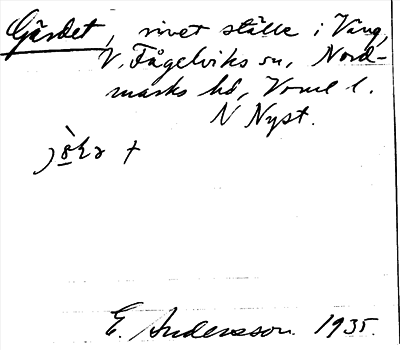 Gärdet, rivet ställe i Väng,
V. Fågelviks sn, Nord-
marks hd, Vrml l.
N Nyst.
E. Andersson 1935.